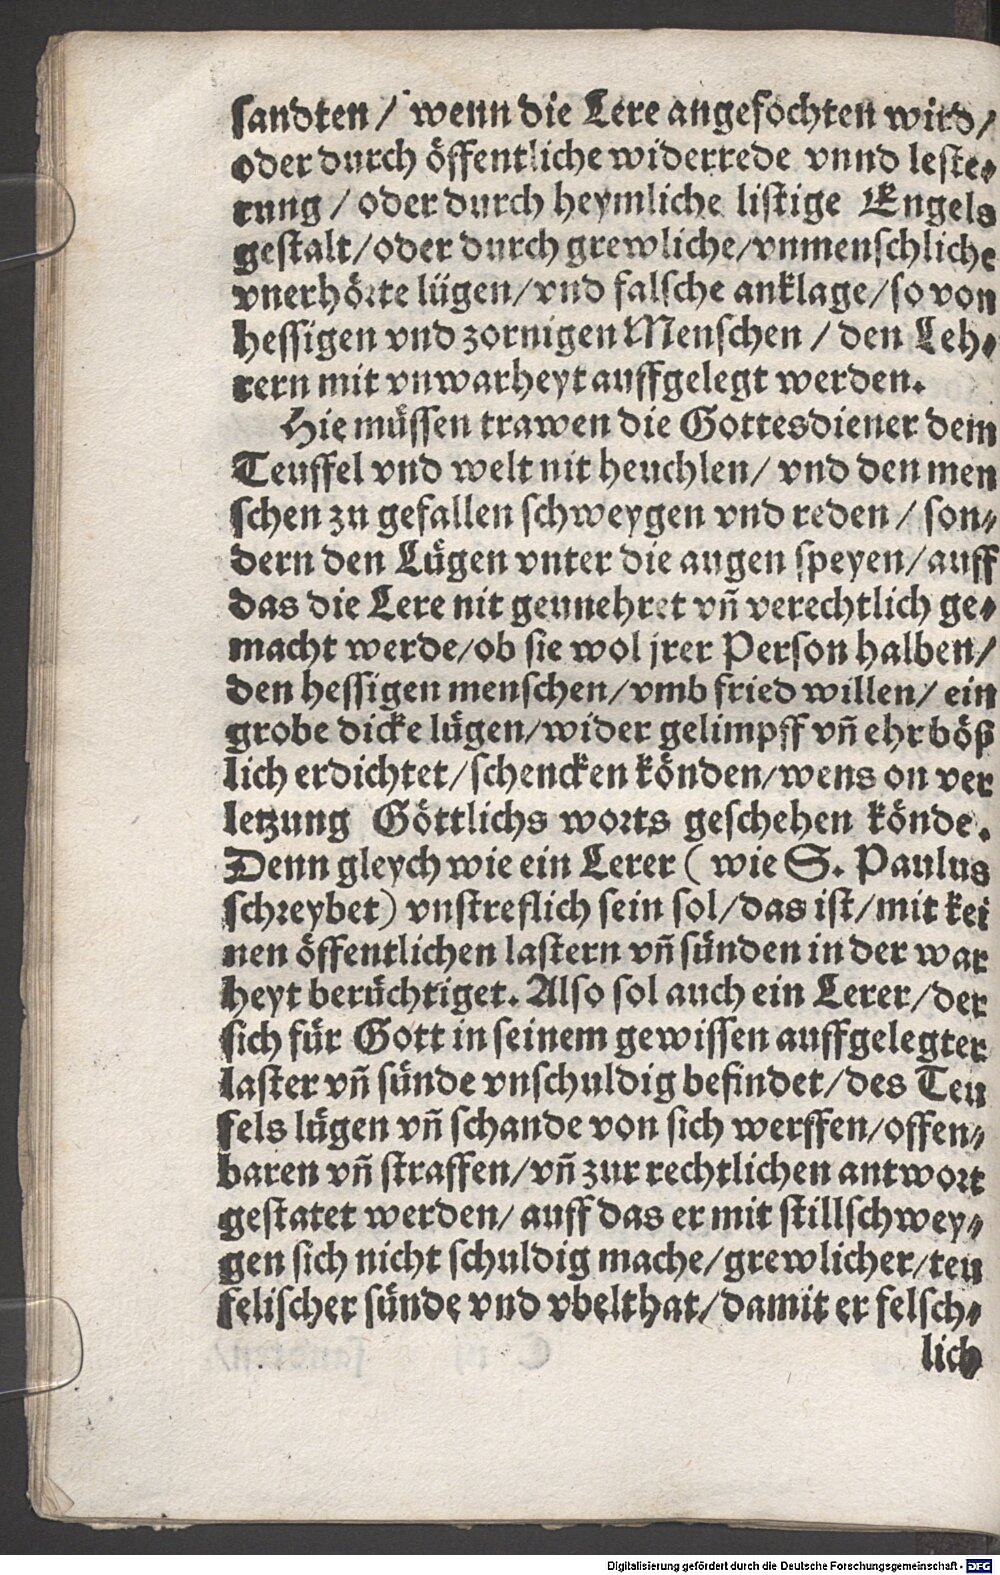 sandten / wenn die Lere angefochten wird /
oder durch öffentliche widerrede vnnd leste⸗
rung / oder durch heymliche listige Engels
gestalt / oder durch grewliche / vnmenschliche
vnerhörte lügen / vnd falsche anklage / so von
hessigen vnd zornigen Menschen / den Leh⸗
rern mit vnwarheyt auffgelegt werden.
Hie müssen trawen die Gottesdiener dem
Teuffel vnd welt nit heuchlen / vnd den men
schen zu gefallen schweygen vnd reden / son⸗
dern den Lügen vnter die augen speyen / auff
das die Lere nit geunehret vñ verechtlich ge⸗
macht werde / ob sie wol jrer Person halben /
den hessigen menschen / vmb fried willen / ein
grobe dicke lügen / wider gelimpff vñ ehr böß
lich erdichtet / schencken könden / wens on ver
letzung Göttlichs worts geschehen könde.
Denn gleych wie ein Lerer ( wie S. Paulus
schreybet ) vnstreflich sein sol / das ist / mit kei
nen öffentlichen lastern vñ sünden in der war
heyt berüchtiget. Also sol auch ein Lerer / der
sich für Gott in seinem gewissen auffgelegter
laster vñ sünde vnschuldig befindet / des Teu
fels lügen vñ schande von sich werffen / offen⸗
baren vñ straffen / vñ zur rechtlichen antwort
gestatet werden / auff das er mit stillschwey⸗
gen sich nicht schuldig mache / grewlicher / teu
felischer sünde vnd vbelthat / damit er felsch⸗
lich
Digitalisierung gefördert durch die Deutsche Forschungsgemeinschaft - DFG